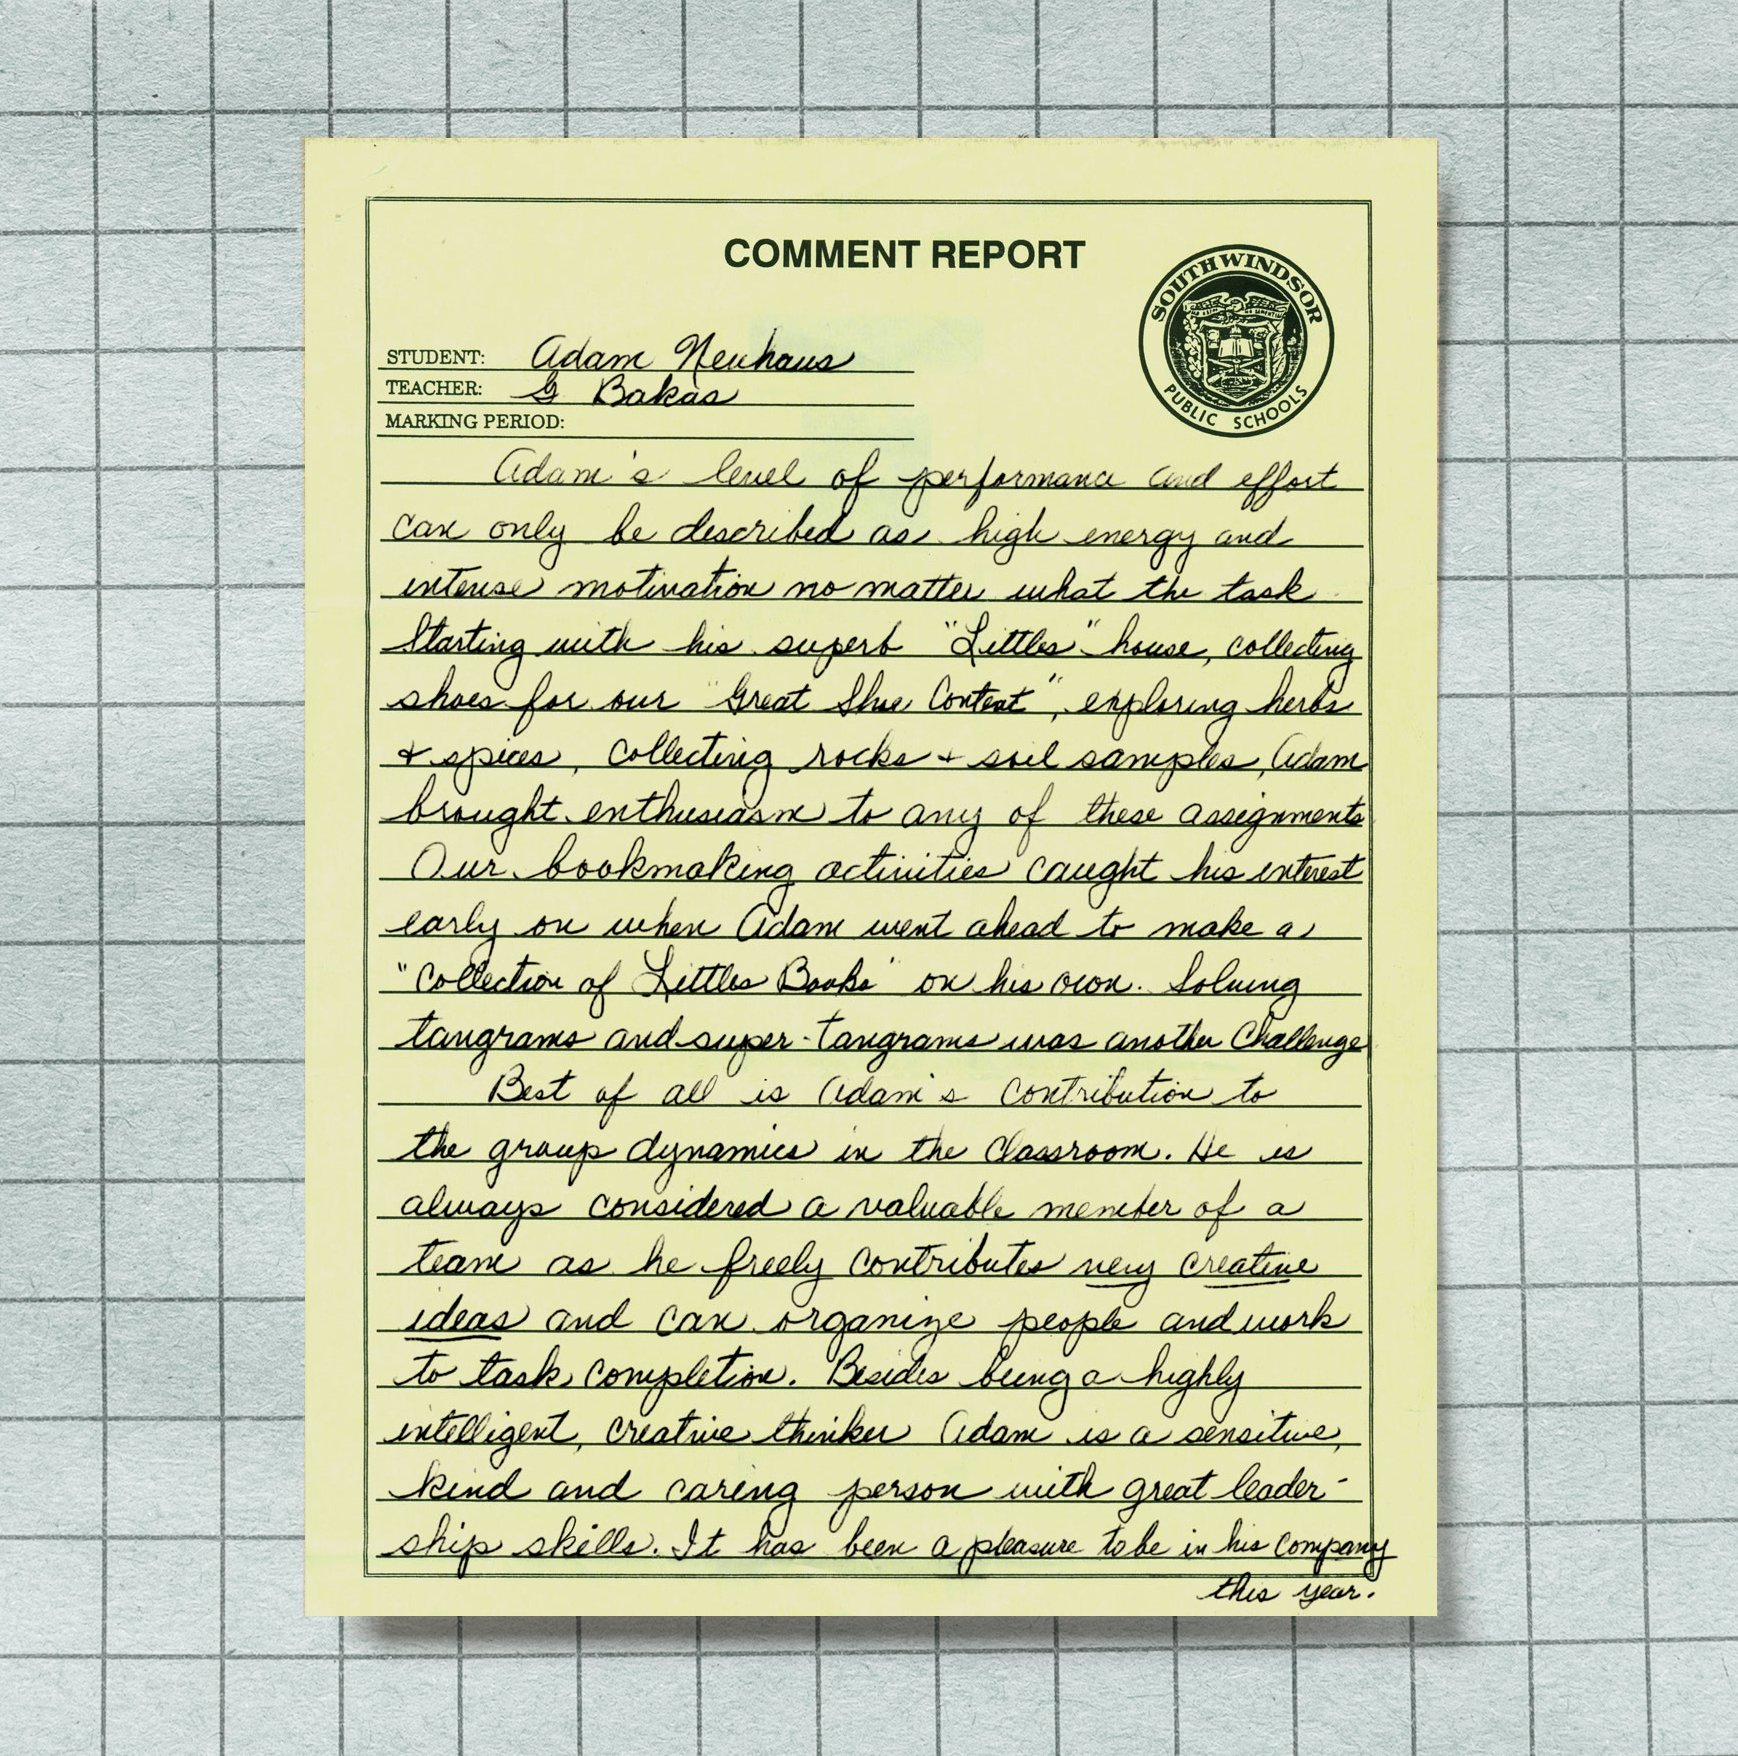 COMMENT REPORT
SOUTH WINDSOR
PUBLIC SCHOOLS
STUDENT: Adam Neuhaus
TEACHER: G Bakas
MARKING PERIOD:
Adam's level of performance and effort
can only be described as high energy and
intense motivation no matter what the task
Starting with his superb "Littles" house, collecting
shoes for our "Great Shoe Contest", exploring herbs
+ spices, collecting rocks + soil samples, Adam
brought enthusiasm to any of these assignments
Our bookmaking activities caught his interest
early on when Adam went ahead to make a
"Collection of Littles Books" on his own. Solving
tangrams and super-tangrams was another challenge
Best of all is Adam's contribution to
the group dynamics in the classroom. He is
always considered a valuable member of a
team as he freely contributes very creative
ideas and can organize people and work
to task completion. Besides being a highly
intelligent, creative thinker Adam is a sensitive,
kind and caring person with great leader-
ship skills. It has been a pleasure to be in his company
this year.